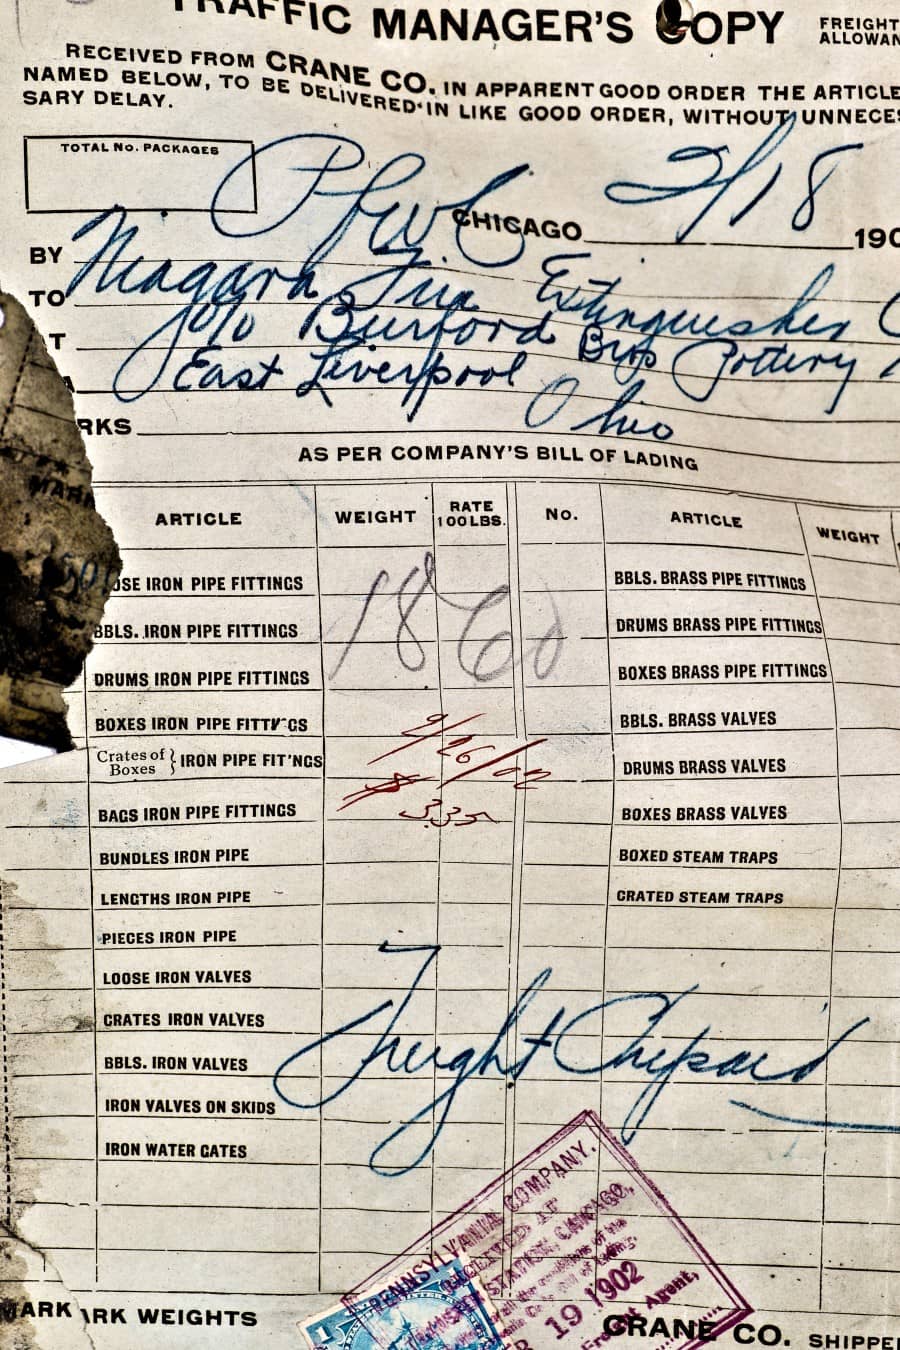 TRAFFIC MANAGER'S COPY
FREIGHT
ALLOWAN
RECEIVED FROM CRANE CO. IN APPARENT GOOD ORDER THE ARTICLE
NAMED BELOW, TO BE DELIVERED IN LIKE GOOD ORDER, WITHOUT UNNECES
SARY DELAY.
TOTAL NO. PACKAGES
CHICAGO 2/18 190
BY
TO Niagara Fire Extinguisher C
T c/o Burford Bros Pottery
East Liverpool Ohio
RKS
AS PER COMPANY'S BILL OF LADING
ARTICLE WEIGHT RATE 100 LBS. NO. ARTICLE WEIGHT
OSE IRON PIPE FITTINGS BBLS. BRASS PIPE FITTINGS
1860
BBLS. IRON PIPE FITTINGS DRUMS BRASS PIPE FITTINGS
DRUMS IRON PIPE FITTINGS BOXES BRASS PIPE FITTINGS
BOXES IRON PIPE FITTINGS BBLS. BRASS VALVES
2/26/02
Crates of Boxes } IRON PIPE FIT'NGS DRUMS BRASS VALVES
335
BAGS IRON PIPE FITTINGS BOXES BRASS VALVES
BUNDLES IRON PIPE BOXED STEAM TRAPS
LENGTHS IRON PIPE CRATED STEAM TRAPS
PIECES IRON PIPE
LOOSE IRON VALVES
CRATES IRON VALVES
Freight Prepaid
BBLS. IRON VALVES
IRON VALVES ON SKIDS
IRON WATER GATES
PENNSYLVANIA COMPANY.
RECEIVED AT
STATION, CHICAGO,
19 1902
Freight Agent,
1
MARK ARK WEIGHTS
CRANE CO. SHIPPE